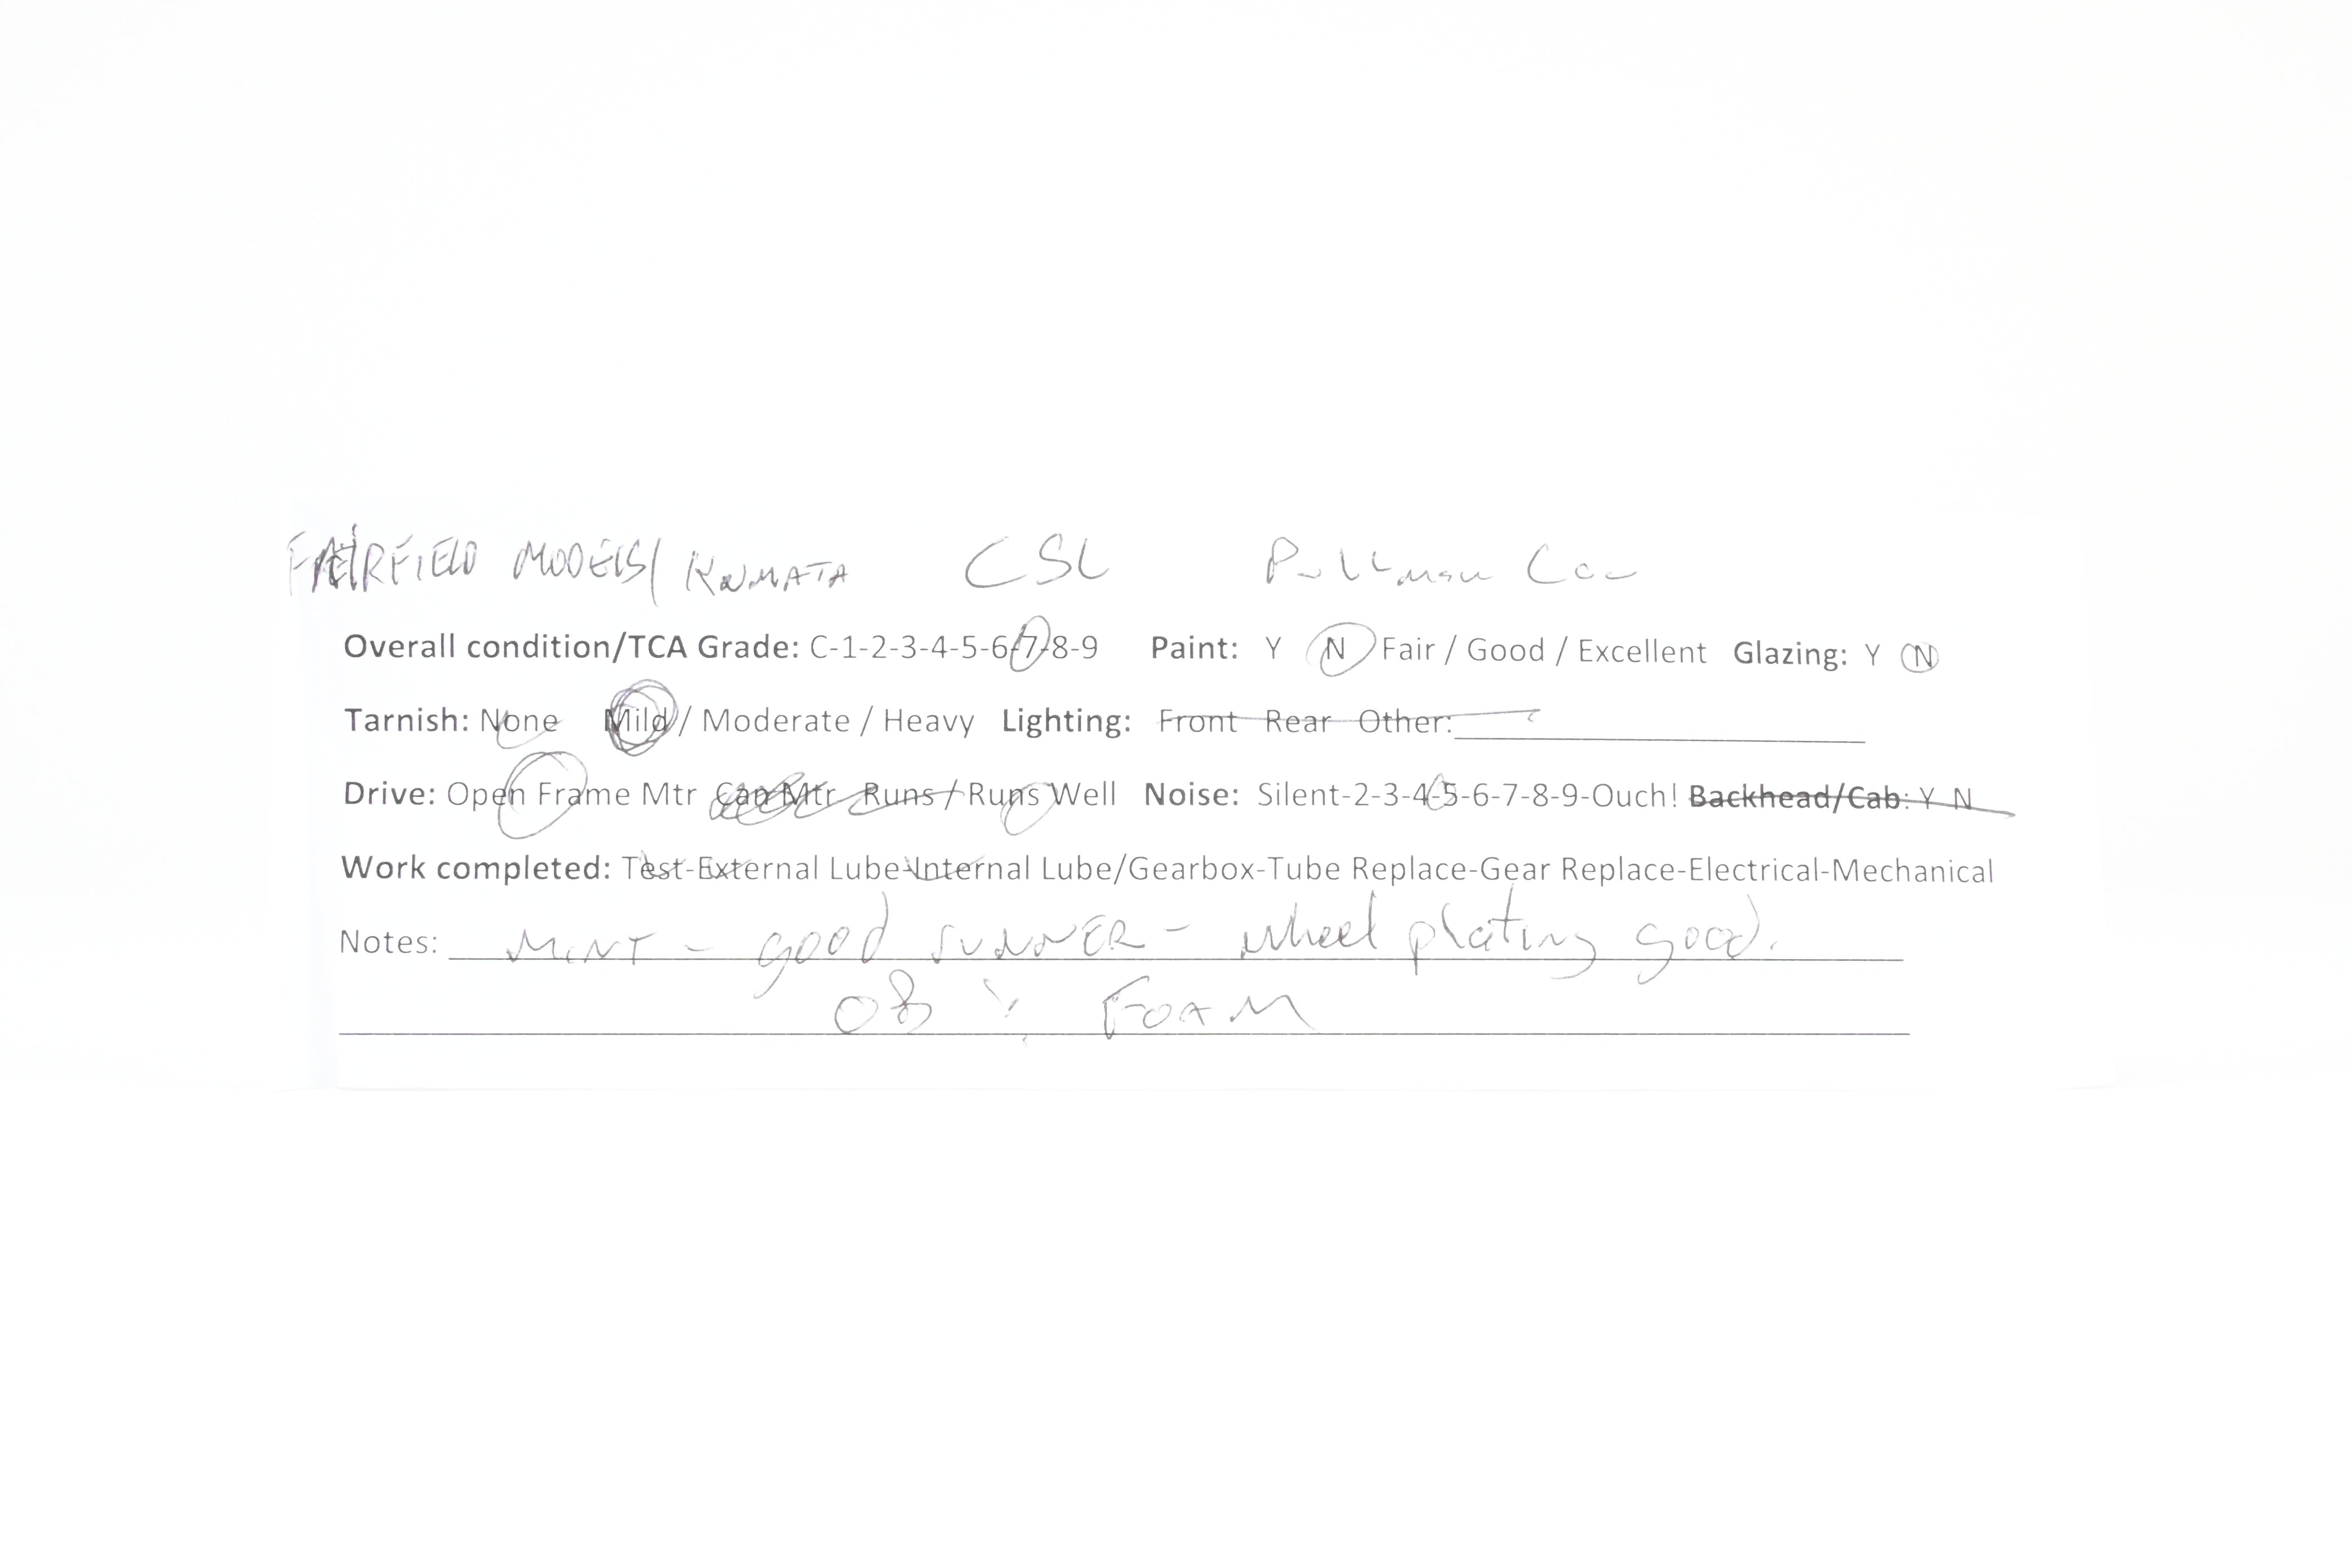 FAIRFIELD MODELS/ KUMATA CSL Pullman Car
Overall condition/TCA Grade: C-1-2-3-4-5-6-7-8-9 Paint: Y N Fair / Good / Excellent Glazing: Y N
Tarnish: None Mild / Moderate / Heavy Lighting: Front Rear Other:
Drive: Open Frame Mtr Can Mtr Runs / Runs Well Noise: Silent-2-3-4-5-6-7-8-9-Ouch! Backhead/Cab: Y N
Work completed: Test-External Lube-Internal Lube/Gearbox-Tube Replace-Gear Replace-Electrical-Mechanical
Notes: MINT - good runner - wheel plating good.
OB FOAM